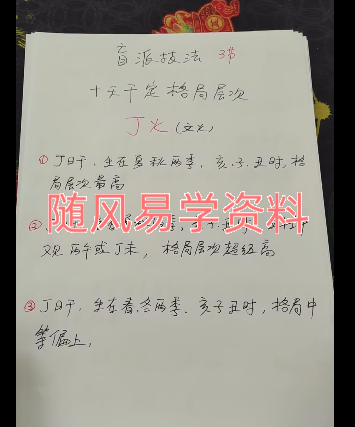 盲派技法 3节
十天干定格局层次
丁火(文火)
①丁日干.生在夏秋两季.亥.子.丑时,格
局层次最高
随风易学资料
②
又见丙午或丁未,格局层次超级高
③丁日干.生在春.冬两季.亥子丑时,格局中
等偏上.